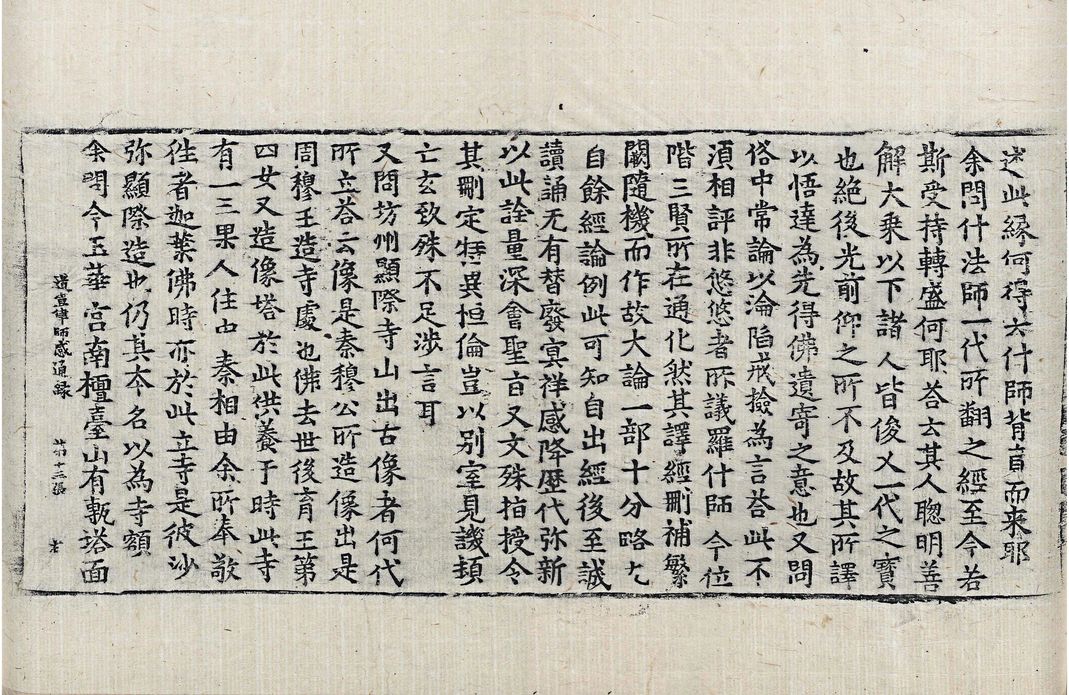 述此緣何得去什師背育而来耶
余問什法師一代所翻之經至今若
斯受持轉盛何耶荅云其人聦明善
解大乗以下諸人皆俊乂一代之寳
也絶後光前仰之所不及故其所譯
以悟達為先得佛遺寄之意也又問
俗中常論以淪陷戒撿為言荅此不
湏相評非悠悠者所議羅什師今位
階三賢所在通化然其譯經刪補繁
闕隨機而作故大論一部十分略九
自餘經論例此可知自出經後至誠
讀誦无有替廢冥祥感降歴代弥新
以此詮量深會聖旨又文殊指授令
其刪定特異恒倫豈以别室見譏頓
亡玄致殊不足涉言耳
又問坊州顯際寺山出古像者何代
所立荅云像是秦穆公所造像出是
周穆王造寺處也佛去世後育王第
四女又造像塔於此供養于時此寺
有一三果人住中秦相由余所奉敬
徃者迦葉佛時亦於此立寺是彼沙
弥顯際造也仍其夲名以為寺額
余問今玉華宮南檀臺山有甎塔面
道宣律師感通録 苐十三張